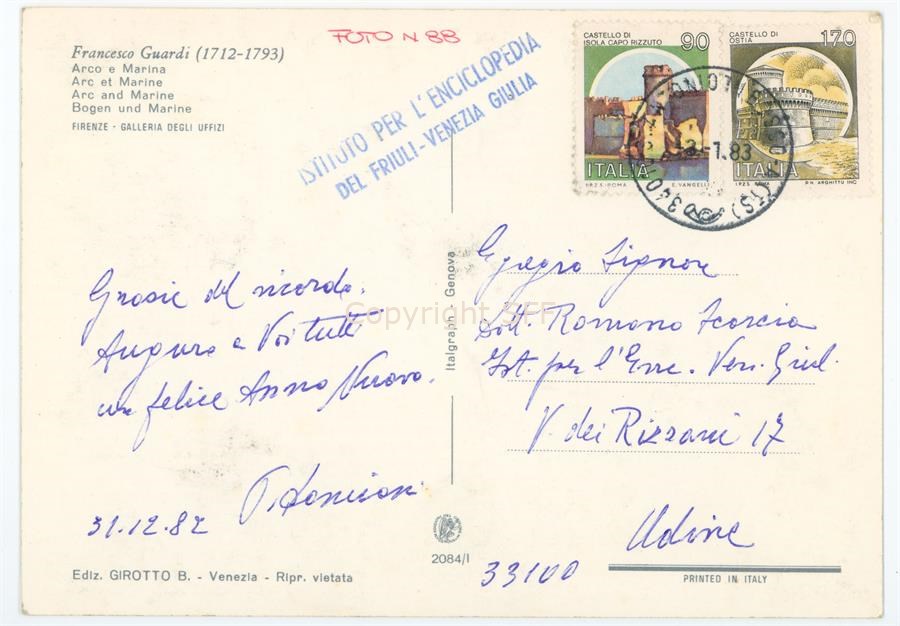 Francesco Guardi (1712-1793)
Arco e Marina
Arc et Marine
Arc and Marine
Bogen und Marine
FIRENZE - GALLERIA DEGLI UFFIZI
FOTO N 88
ISTITUTO PER L'ENCICLOPEDIA
DEL FRIULI-VENEZIA GIULIA
CASTELLO DI
ISOLA CAPO RIZZUTO
90
ITALIA
I.P.Z.S. ROMA E. VANGELLI
CASTELLO DI
OSTIA
170
ITALIA
I.P.Z.S. ROMA
-1.83
(TS)
Grazie del ricordo.
Auguro a Voi tutti
un felice Anno Nuovo.
31.12.82
Italgraph - Genova
Egregio Signore
Dott. Romano Scarcia
Ist. per l'Enc. Ven. Giul.
V. dei Rizzani 17
Udine
33100
2084/I
Ediz. GIROTTO B. - Venezia - Ripr. vietata
PRINTED IN ITALY
Copyright SFF